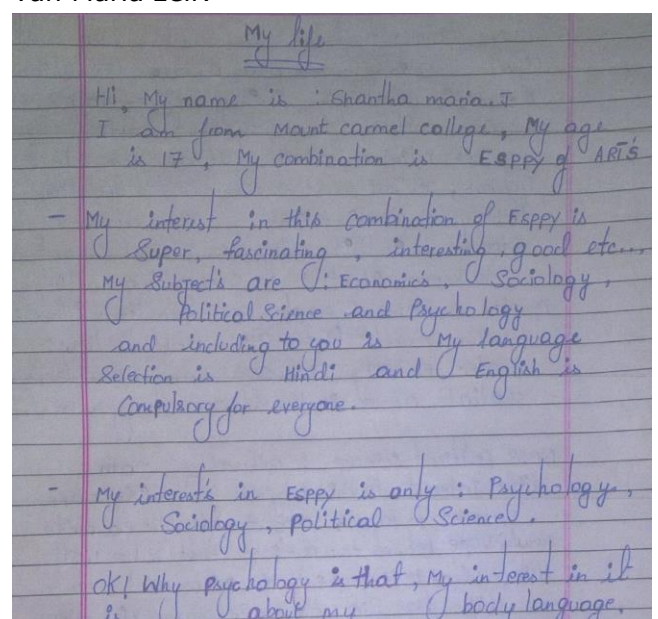 My life
Hi, My name is : Shantha maria. J
I am from Mount carmel college, My age
is 17, My combination is ESPPy of ARTS
- My interest in this combination of Esppy is
Super, fascinating, interesting, good etc...
My Subject's are : Economic's, Sociology,
Political Science and Psychology
and including to you is My language
Selection is Hindi and English is
Compulsory for everyone.
- My interest's in ESPPy is only : Psychology,
Sociology, Political Science.
OK! Why psychology is that, My interest in it
is about my body language.